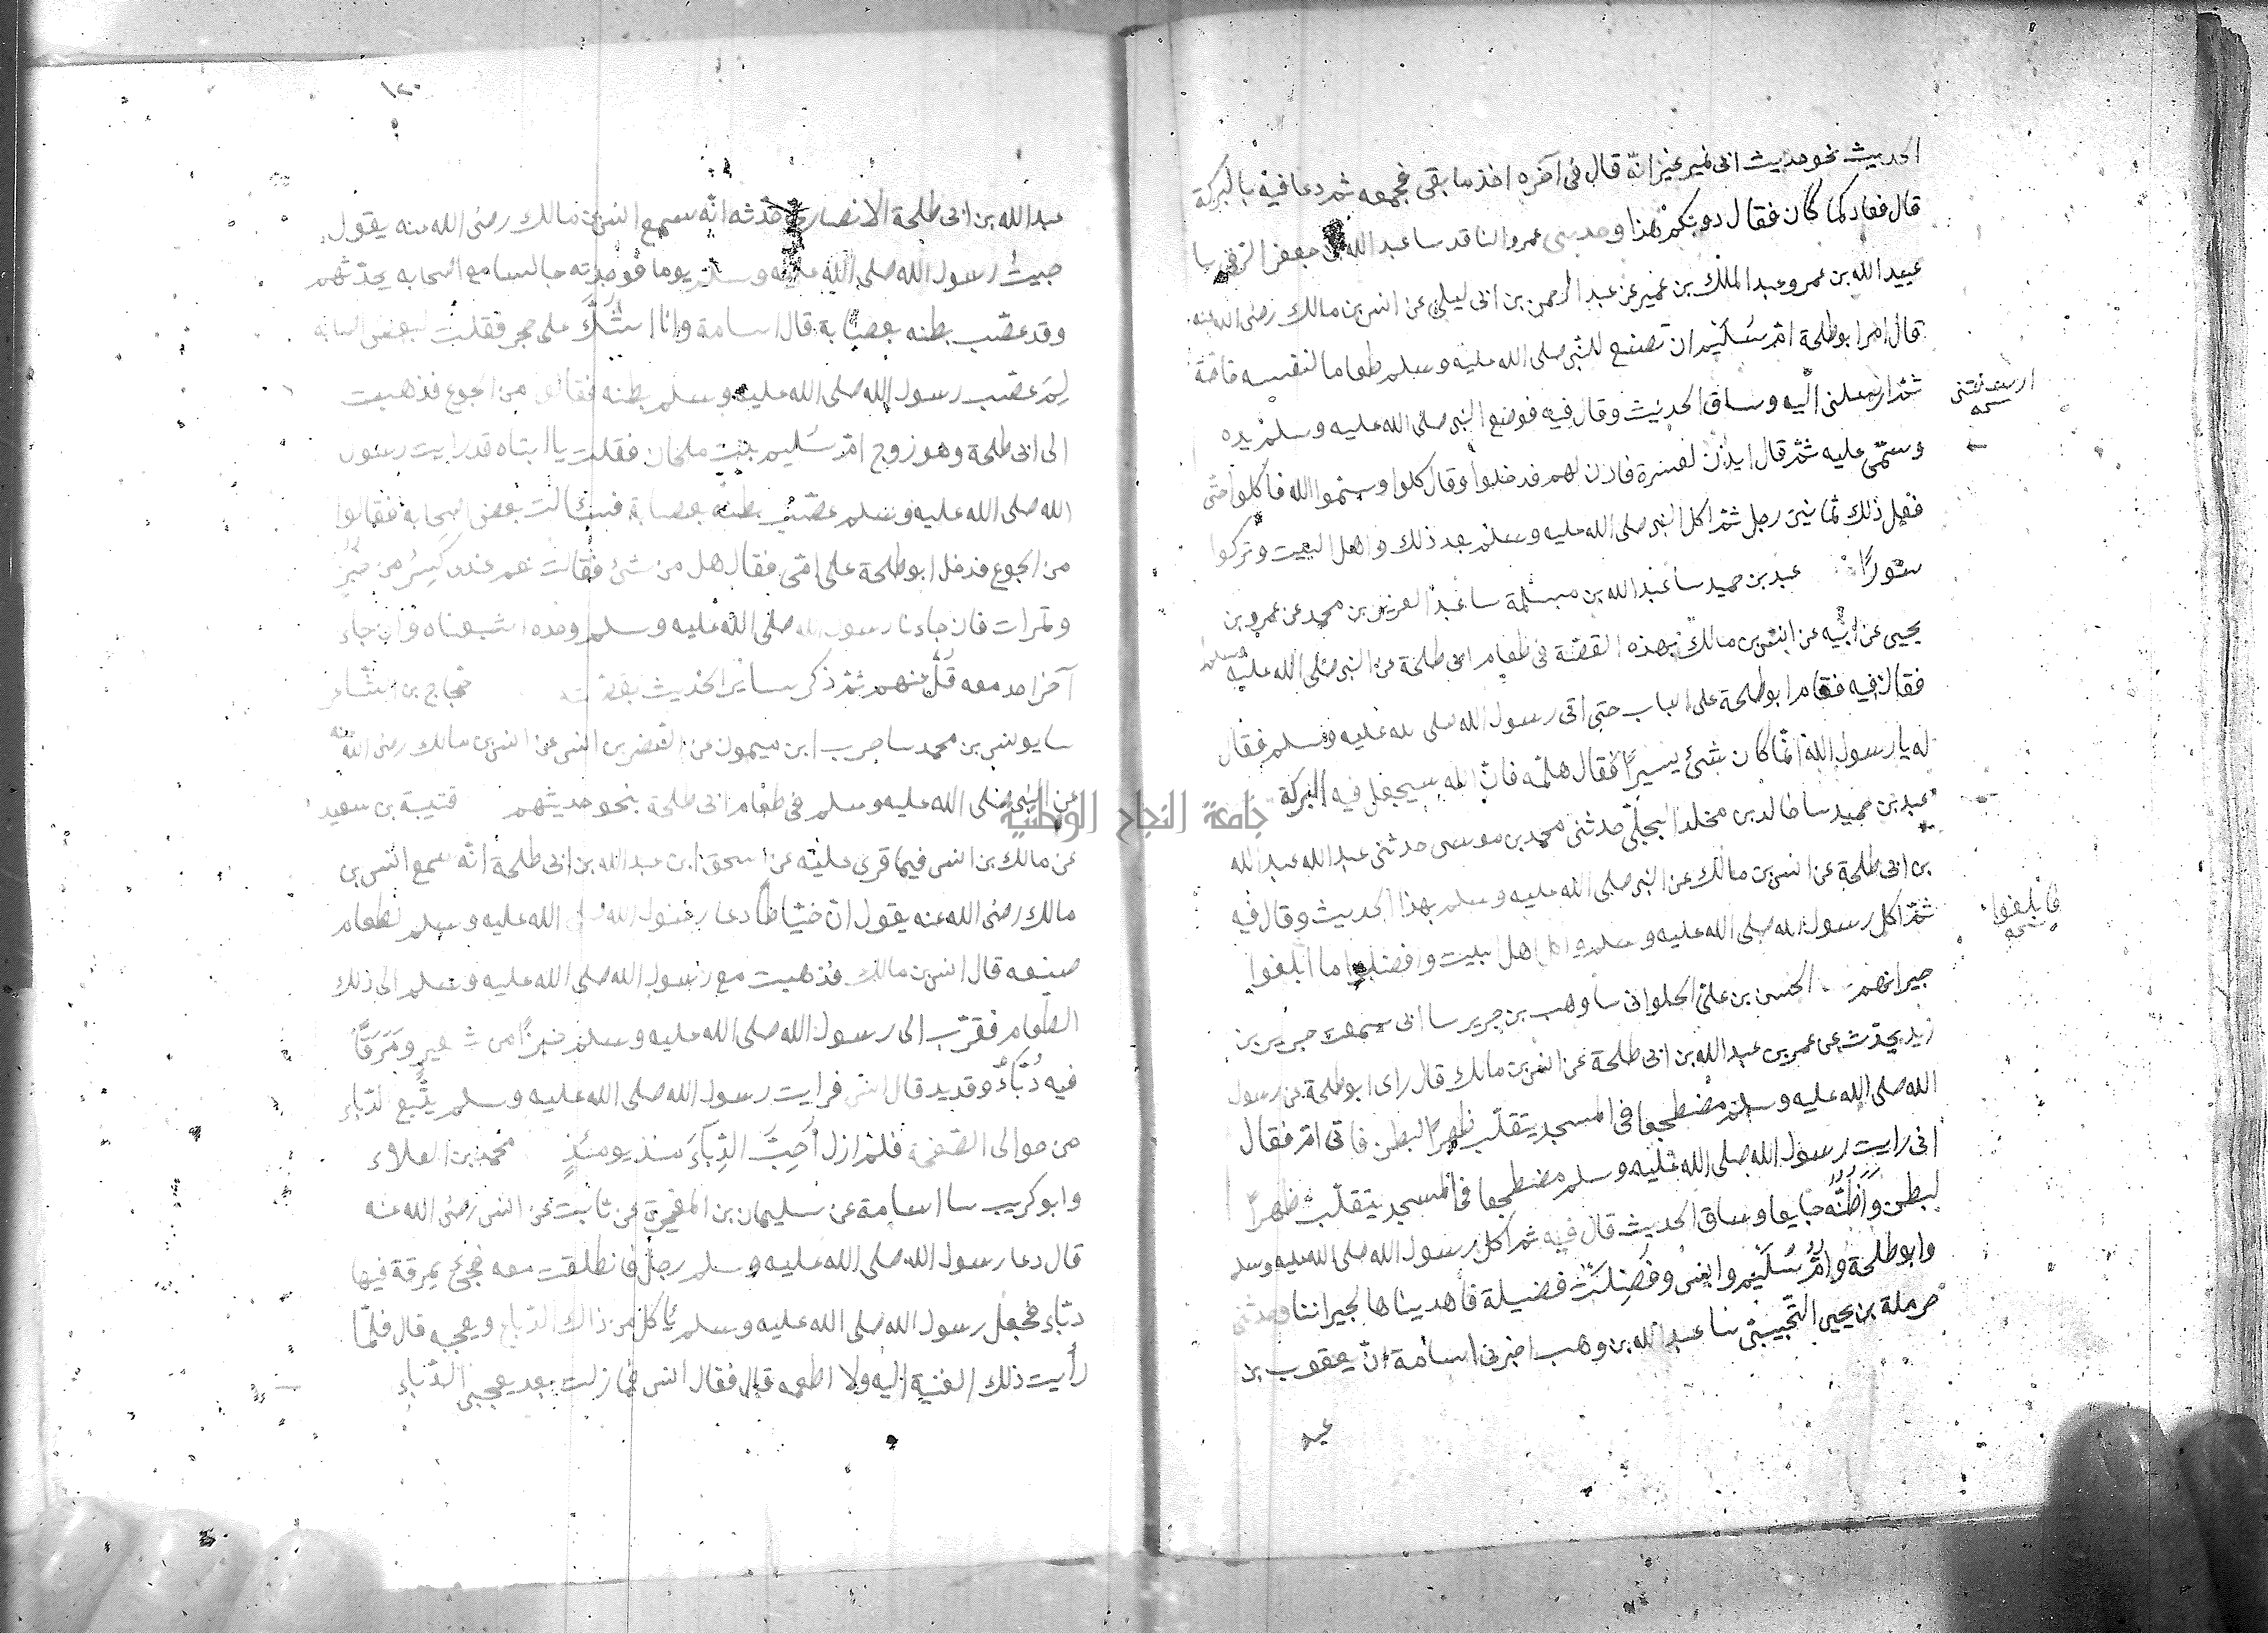 الحديث نحو حديث ابى نمير غير انّه قال فى آخره اخذ ما بقى فجمعه ثم دعا فيه بالبركة
قال فعاد كما كان فقال دونكم هذا وحدسى عمرو الناقد سا عبد الله بن جعفر الرقى سا
عبيد الله بن عمرو عبد الملك بن عمير عن عبد الرحمن بن ابى ليلى عن انس بن مالك رضى الله عنه
قال امر ابو طلحة امّ سُلَيم ان تصنع للنبى صلى الله عليه وسلم طعاما لنفسه خاصّة
ثمّ ارسلنى اليه وساق الحديث وقال فيه فوضع النبى صلى الله عليه وسلم يده
ارسلتنى
نسخه
وسمّى عليه ثمّ قال ايذن لعشرة فاذن لهم فدخلوا وقال كلوا وسمّوا الله فأكلوا حتّى
فعل ذلك ثمانين رجل ثمّ اكل النبى صلى الله عليه وسلم بعد ذلك واهل البيت وتركوا
سُورًا عبد بن حميد سا عبد الله بن مسلمة سا عبد العزيز بن محمد عن عمرو بن
يحيى عن ابيه عن انس بن مالك بهذه القصّة فى طعام ابى طلحة عن النبى صلى الله عليه وسلم
فقال فيه فقام ابو طلحة على الباب حتى اتى رسول الله صلى الله عليه وسلم فقال
له يا رسول الله انّما كان شئ يسيرًا فقال هلمّه فانّ الله سيجعل فيه البركة
عبد بن حميد سا خالد بن مخلد البجلىّ حدثنى محمد بن موسى حدثنى عبد الله عبد الله
بن ابى طلحة عن انس بن مالك عن النبى صلى الله عليه وسلم بهذا الحديث وقال فيه
ثمّ اكل رسول الله صلى الله عليه وسلم واكل اهل البيت وافضلوا ما ابلغوا
فابلغوا
نسخه
جيرانهم الحسن بن علىّ الحلوانى سا وهب بن جرير سا ابى سمعت جرير بن
زيد يحدّث عن عمرو بن عبد الله بن ابى طلحة عن انس بن مالك قال راى ابو طلحة عن رسول
الله صلى الله عليه وسلم مضطجعا فى المسجد يتقلّب ظهرًا لبطن فاتى امّ فقال
انى رايت رسول الله صلى الله عليه وسلم مضطجعا فى المسجد يتقلّب ظهرًا
لبطن وَأَظُنُّه جايعا وساق الحديث قال فيه ثم اكل رسول الله صلى الله عليه وسلم
وابو طلحة وامُّ سُلَيْم وانس وفَضِلَتْ فضيلة فأهديناها لجيراننا وحدثنى
حرملة بن يحيى التّجيبىّ سا عبد الله بن وهب اخبرنى اسامة انّ يعقوب بن
عبد
١٢٠
عبد الله بن ابى طلحة الانصارى حدّثه انّه سمع انس بن مالك رضى الله عنه يقول
جيت رسول الله صلى الله عليه وسلم يوما فوجدته جالسا مع اصحابه يحدّثهم
وقد عصّب بطنه بعصابة قال اسامة وانا اشُكُّ على حجر فقلت لبعض اصحابه
لِمَ عصّب رسول الله صلى الله عليه وسلم بطنه فقالوا من الجوع فذهبت
الى ابى طلحة وهو زوج امّ سُليم بنت ملحان فقلت يا ابتاه قد رايت رسول
الله صلى الله عليه وسلم عصّب بطنه بعصابة فسالت بعض اصحابه فقالوا
من الجوع فدخل ابو طلحة على امّى فقال هل من شئ فقالت نعم عندى كِسَرٌ من خبزٍ
وتمرات فان جاءنا رسول الله صلى الله عليه وسلم وحده اشبعناه وان جاء
آخر احد معه قلّ عنهم ثمّ ذكر ساير الحديث بقصّته حجاج بن الشاعر
سا يونس بن محمد سا حرب ابن ميمون عن النضر بن انس عن انس بن مالك رضى الله عنه
عن النبى صلى الله عليه وسلم فى طعام ابى طلحة بنحو حديثهم قتيبة بن سعيد
عن مالك بن انس فيما قرى عليه عن اسحق ابن عبد الله بن ابى طلحة انّه سمع انس بن
مالك رضى الله عنه يقول انّ خيّاطًا دعا رسول الله صلى الله عليه وسلم لطعام
صنعه قال انس بن مالك فذهبت مع رسول الله صلى الله عليه وسلم الى ذلك
الطعام فقرّب الى رسول الله صلى الله عليه وسلم خبزًا من شعير ومَرَقًا
فيه دُبّاءٌ وقديد قال انس فرايت رسول الله صلى الله عليه وسلم يتّبع الدّباء
من حوالى الصّحفة فلم ازل أُحِبُّ الدِبّاءَ منذ يومئذٍ محمد بن العلاء
وابو كريب سا اسامة عن سليمان بن المغيرة عن ثابت عن انس رضى الله عنه
قال دعا رسول الله صلى الله عليه وسلم رجل فانطلقت معه فجئ بمرقة فيها
دبّاء فجعل رسول الله صلى الله عليه وسلم يأكل من ذاك الدّباء ويعجبه قال فلمّا
رأيت ذلك القيه اليه ولا اطعمه قال فقال انس فما زلت بعد يعجبنى الدّبّاء
جامعة النجاح الوطنية